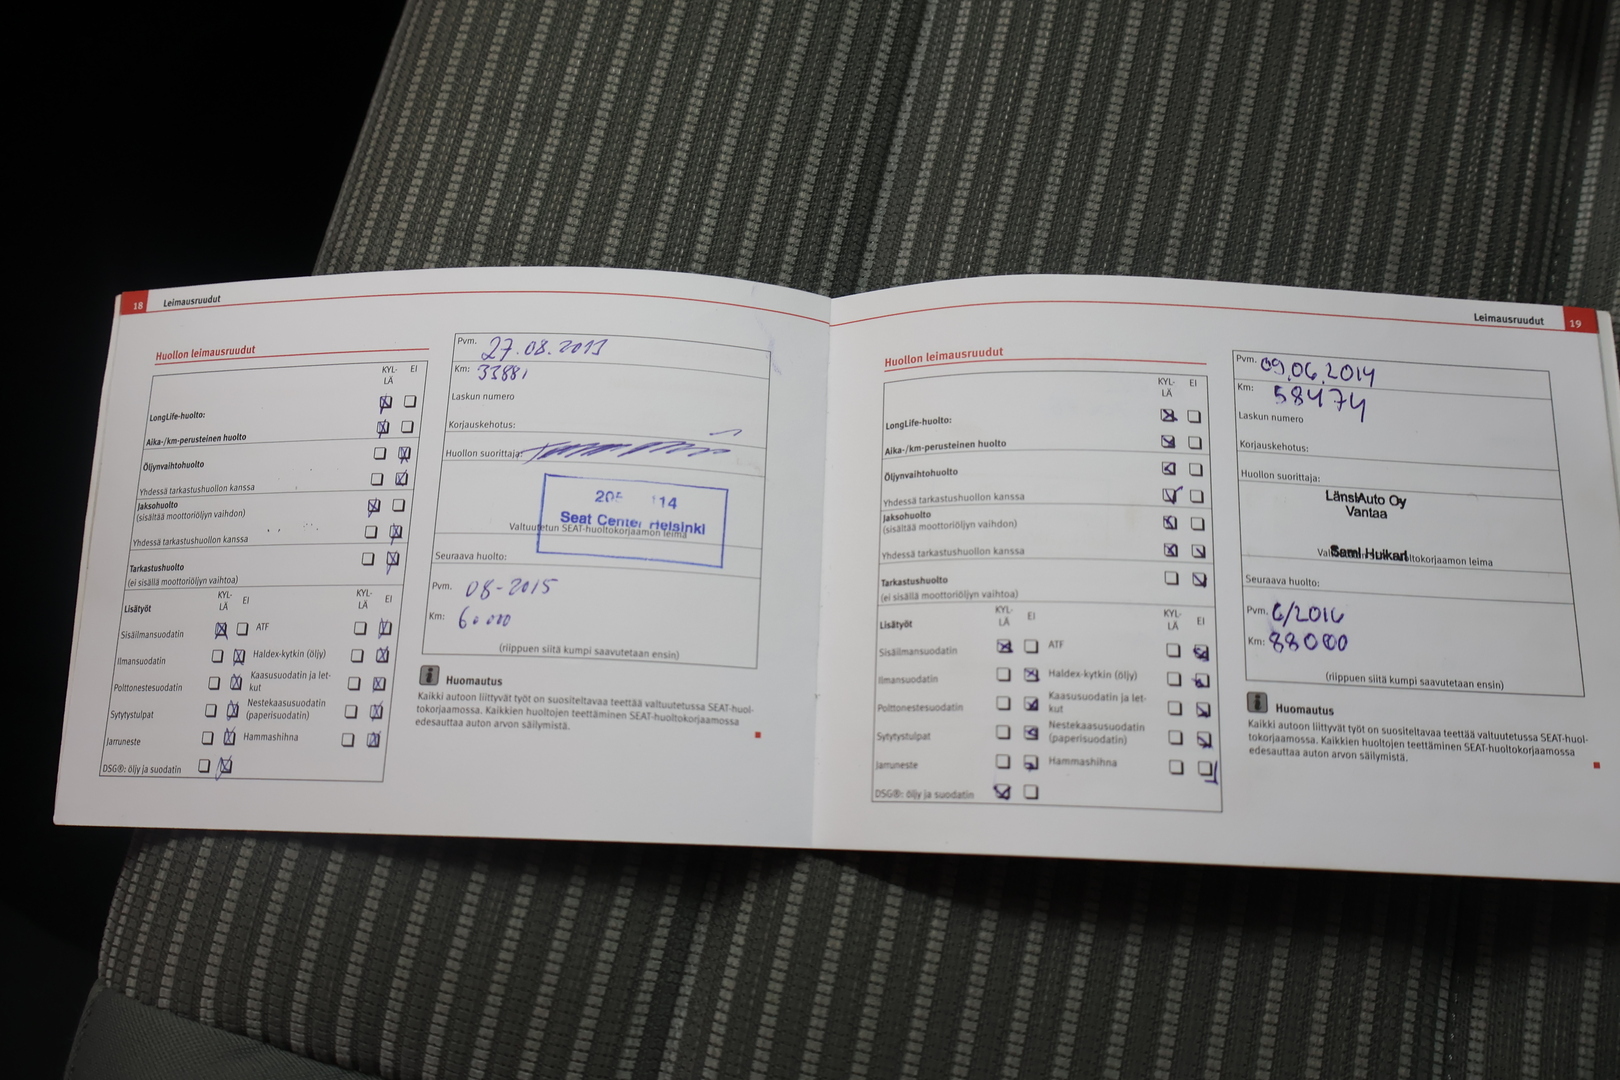 18 Leimausruudut
Huollon leimausruudut
KYL-
LÄ
EI
LongLife-huolto:
Aika-/km-perusteinen huolto
Öljynvaihtohuolto
Yhdessä tarkastushuollon kanssa
Jaksohuolto
(sisältää moottoriöljyn vaihdon)
Yhdessä tarkastushuollon kanssa
Tarkastushuolto
(ei sisällä moottoriöljyn vaihtoa)
Lisätyöt
KYL-
LÄ
EI
KYL-
LÄ
EI
Sisäilmansuodatin
ATF
Ilmansuodatin
Haldex-kytkin (öljy)
Polttonestesuodatin
Kaasusuodatin ja let-
kut
Sytytystulpat
Nestekaasusuodatin
(paperisuodatin)
Jarruneste
Hammashihna
DSG®: öljy ja suodatin
Pvm. 27.08.2013
Km: 33881
Laskun numero
Korjauskehotus:
Huollon suorittaja:
Seat Center Helsinki
Valtuutetun SEAT-huoltokorjaamon leima
Seuraava huolto:
Pvm. 08-2015
Km: 60000
(riippuen siitä kumpi saavutetaan ensin)
Huomautus
Kaikki autoon liittyvät työt on suositeltavaa teettää valtuutetussa SEAT-huol-
tokorjaamossa. Kaikkien huoltojen teettäminen SEAT-huoltokorjaamossa
edesauttaa auton arvon säilymistä.
Leimausruudut 19
Huollon leimausruudut
KYL-
LÄ
EI
LongLife-huolto:
Aika-/km-perusteinen huolto
Öljynvaihtohuolto
Yhdessä tarkastushuollon kanssa
Jaksohuolto
(sisältää moottoriöljyn vaihdon)
Yhdessä tarkastushuollon kanssa
Tarkastushuolto
(ei sisällä moottoriöljyn vaihtoa)
Lisätyöt
KYL-
LÄ
EI
KYL-
LÄ
EI
Sisäilmansuodatin
ATF
Ilmansuodatin
Haldex-kytkin (öljy)
Polttonestesuodatin
Kaasusuodatin ja let-
kut
Sytytystulpat
Nestekaasusuodatin
(paperisuodatin)
Jarruneste
Hammashihna
DSG®: öljy ja suodatin
Pvm. 09.06.2014
Km: 58474
Laskun numero
Korjauskehotus:
Huollon suorittaja:
LänsiAuto Oy
Vantaa
Sami Huikari
Seuraava huolto:
Pvm. 6/2016
Km: 88000
(riippuen siitä kumpi saavutetaan ensin)
Huomautus
Kaikki autoon liittyvät työt on suositeltavaa teettää valtuutetussa SEAT-huol-
tokorjaamossa. Kaikkien huoltojen teettäminen SEAT-huoltokorjaamossa
edesauttaa auton arvon säilymistä.